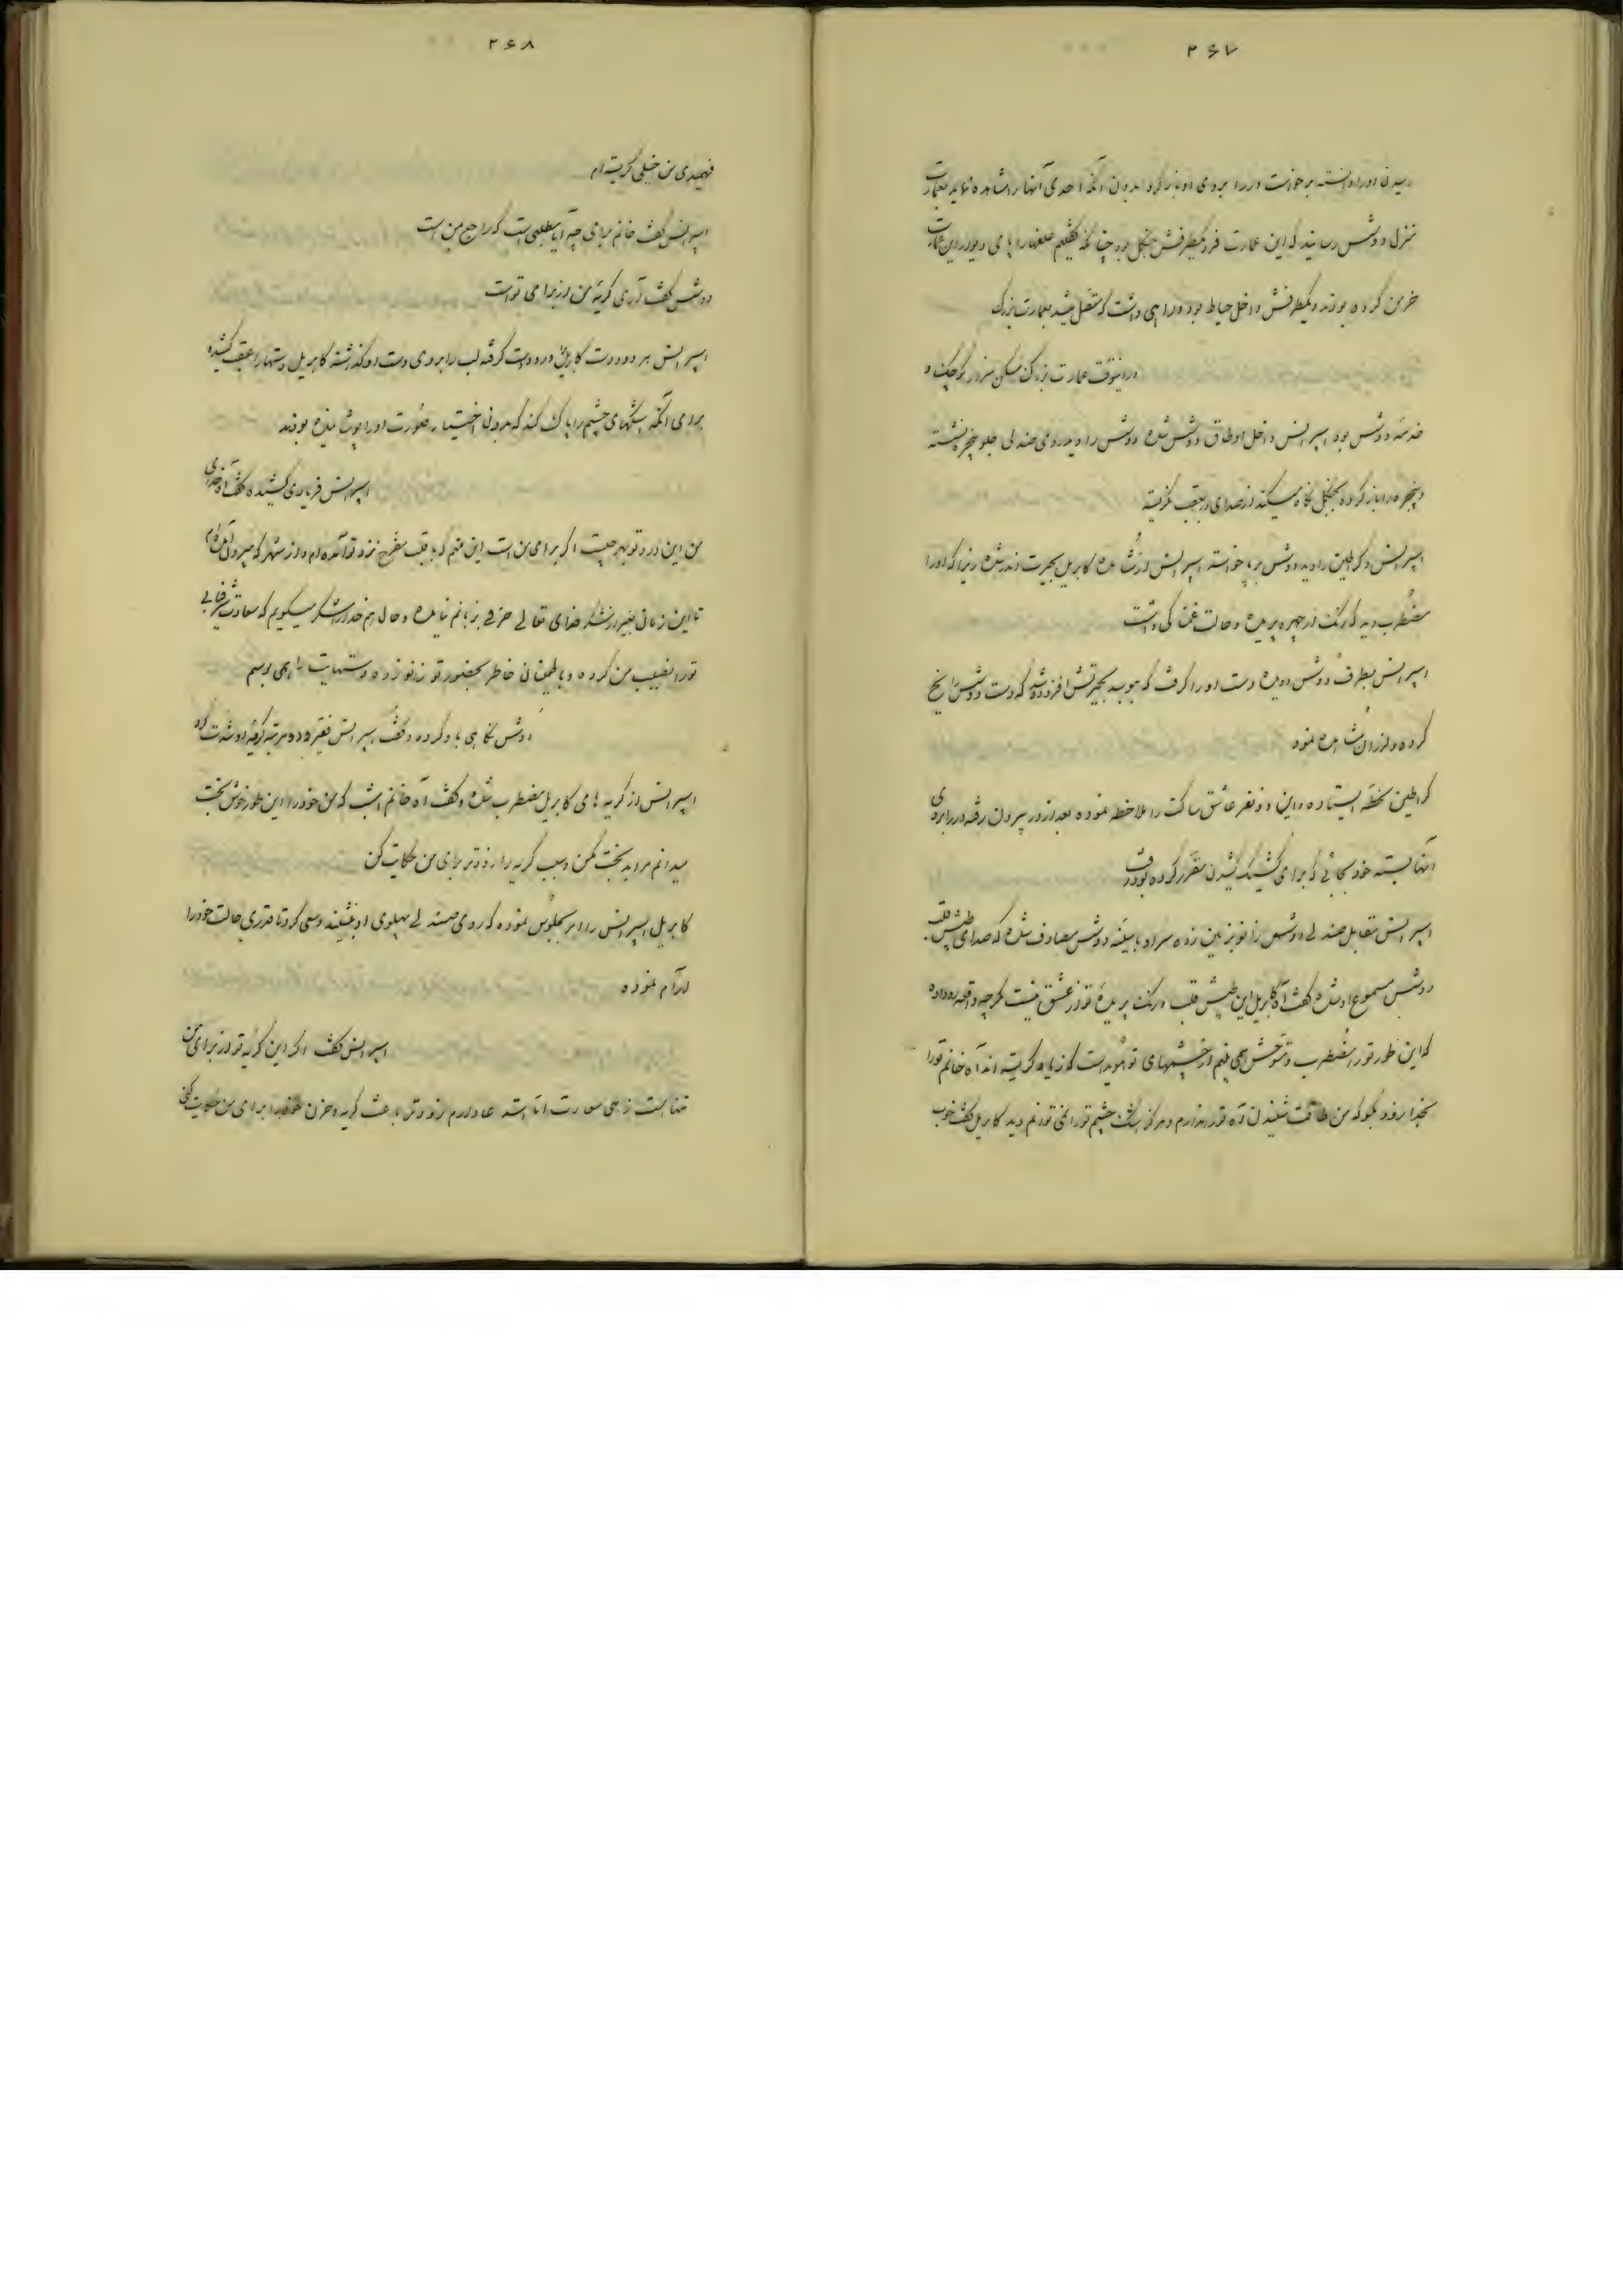 ۲۶۷
رسیدن او را دانسته برخواست در را بروی او باز کرد بدون آنکه احدی آنها را مشاهده نماید بعمارت
منزل دوشس رسانید که این عمارت فرد یکطرفش جنگل بود چنانکه گفتیم علفها را پای دیوار این عمارت
خرمن کرده بودند و یکطرفش داخل حیاط بود و راهی داشت که متصل میشد بعمارت بزرگ
در اینوقت عمارت بزرگ مسکن سزار کوچک و
خدمه دوشس بود اسپرانس داخل اوطاق دوشس شده دوشس را دید روی صندلی جلو پنجره نشسته
و پنجره را باز کرده بجنگل نگاه میکند از صدای در بعقب نگریسته
اسپرانس و کراطین را دید دوشس برپا خواسته اسپرانس از مشاهده کابریل بحیرت اندر شده زیرا که او را
مضطرب دید که رنگ از چهره پریده و حالت غمناکی داشت
اسپرانس بطرف دوشس دویده دست او را گرفت که موجب بحیرتش افزوده شد که دست دوشس را یخ
کرده و لرزان مشاهده نمود
کراطین لحظه ایستاده و این دو نفر عاشق ساکت را ملاحظه نموده بعد از در بیرون رفته در را بروی
آنها بسته خود بجائی که برای کشیک کشیدن مقرر کرده بود رفت
اسپرانس مقابل صندلی دوشس زانو بزمین زده سر او با سینه دوشس مصادف شده که صدای طپش قلب
دوشس مسموع او شده گفت آه کابریل این طپش قلب و رنگ پریدهٔ تو از عشق نیست مگر چه واقعه رو داده
که این طور تو را مضطرب و متوحش همی بینم از چشمهای تو هویداست که زیاد گریسته اند آه خانم تو را
بخدا زود بگو که من طاقت شنیدن آه تو را ندارم و هرگز اشک چشم تو را نمی توانم دید کابریل گفت خوب
۲۶۸
فهمیدی من خیلی گریسته ام
اسپرانس گفت خانم برای چه آیا مطلبی است که راجع بمن است
دوشس گفت آری گریهٔ من از برای تو است
اسپرانس هر دو دست کابریل را در دست گرفته لب را بروی دست او گذاشته کابریل دستها را عقب کشیده
برای آنکه اشکهای چشم را پاک کند که بدون اختیار صورت او را پوشانیده بودند
اسپرانس فریادی کشیده گفت آه خدای
من این درد تو بهر چیست اگر برای من است این منم که با قلب مفرح نزد تو آمده ام و از شهر که بیرون آمده ام
تا این زمان بغیر از شکر خدای تعالی حرفی بزبانم نیامده و حال هم خدا را شکر میگویم که سعادت شرفیابی
تو را نصیب من کرده و باطمینان خاطر بحضور تو زانو زده دستهایت را همی بوسم
دوشس نگاهی باو کرده و گفت اسپرانس فقیر و دو مرتبه گریه او شدت کرد
اسپرانس از گریه های کابریل مضطرب شده و گفت آه خانم امشب که من خود را این طور خوش بخت
میدانم مرا بدبخت مکن و سبب گریه را زودتر برای من حکایت کن
کابریل اسپرانس را امر بجلوس نموده که روی صندلی پهلوی او بنشیند و سعی کرد تا قدری حالت خود را
آرام نموده
اسپرانس گفت اگر این گریه تو از برای من
تنها است زهی سعادت اما استدعا دارم زودتر باعث گریه و حزن خود را برای من حکایت کنی